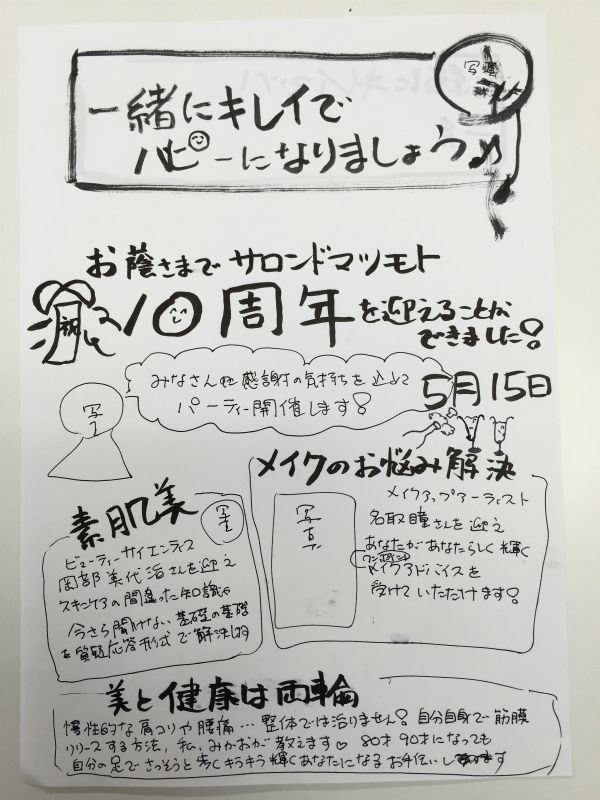 一緒にキレイで
ハッピーになりましょう♪
写真
お蔭さまで サロンドマツモト
祝
10周年を迎えることが
できました!
みなさんに感謝の気持ちを
パーティー開催します!
5月15日
写
メイクのお悩み解決
写真
メイクアップアーティスト
名取瞳さんを迎え
あなたがあなたらしく輝く
メイクアドバイスを
受けていただけます!
素肌美
写真
ビューティーサイエンティス
岡部美代治さんを迎え
スキンケアの間違った知識や
今さら聞けない基礎の基礎
を質疑応答形式で解決
美と健康は両輪
慢性的な肩コリや腰痛…整体では治りません!自分自身で筋膜
リリースする方法、私、みかおが教えます♡ 80才90才になっても
自分の足でさっそうと歩くキラキラ輝くあなたになるお手伝いします